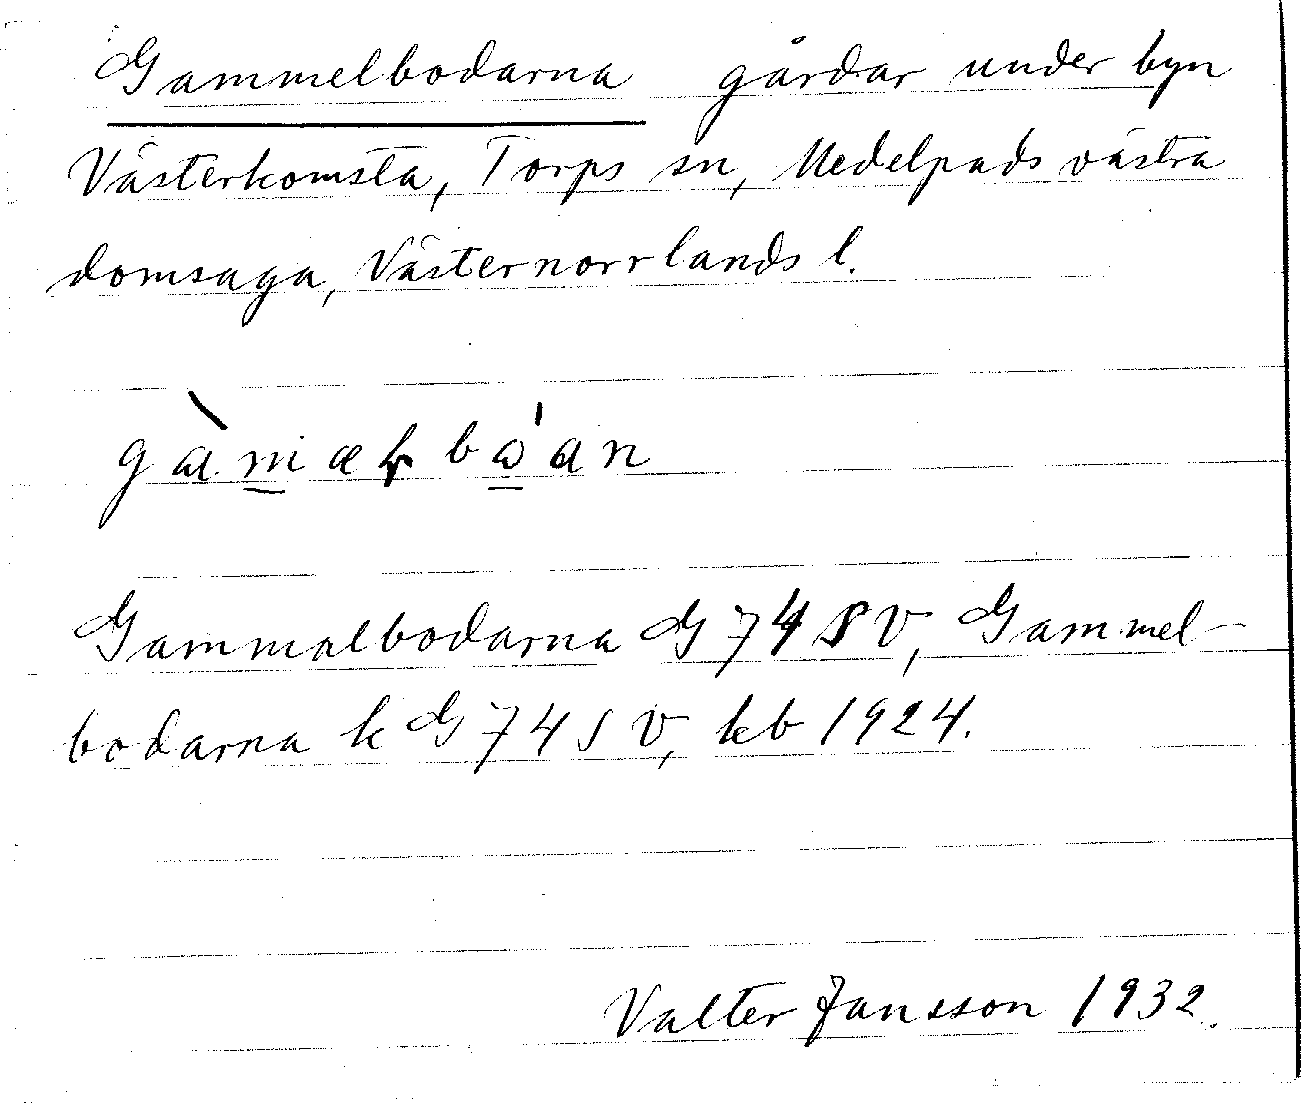 Gammelbodarna gårdar under byn
Västerkomsta, Torps sn, Medelpads västra
domsaga, Västernorrlands l.
Gammalbodarna G 74 SV, Gammel-
bodarna k G 74 SV, kb 1924.
Valter Jansson 1932.